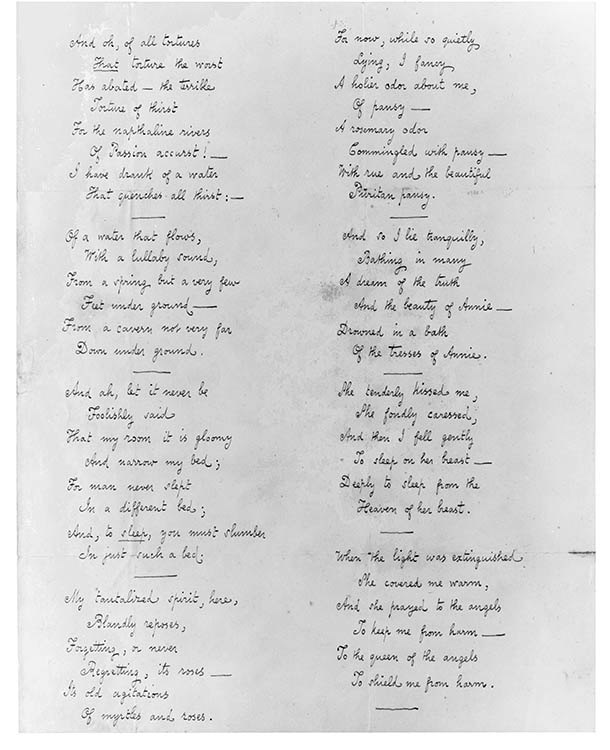 And oh, of all tortures
That torture the worst
Has abated — the terrible
Torture of thirst
For the napthaline rivers
Of Passion accurst! —
I have drank of a water
That quenches all thirst: —
Of a water that flows,
With a lullaby sound,
From a spring but a very few
Feet under ground —
From a cavern not very far
Down under ground.
And ah, let it never be
Foolishly said
That my room it is gloomy
And narrow my bed;
For man never slept
In a different bed;
And, to sleep, you must slumber
In just such a bed.
My tantalized spirit, here,
Blandly reposes,
Forgetting, or never
Regretting, its roses —
Its old agitations
Of myrtles and roses.
For now, while so quietly
Lying, I fancy
A holier odor about me,
Of pansy —
A rosemary odor
Commingled with pansy —
With rue and the beautiful
Puritan pansy.
And so I lie tranquilly,
Bathing in many
A dream of the truth
And the beauty of Annie —
Drowned in a bath
Of the tresses of Annie.
She tenderly kissed me,
She fondly caressed,
And then I fell gently
To sleep on her breast —
Deeply to sleep from the
Heaven of her breast.
When the light was extinguished
She covered me warm,
And she prayed to the angels
To keep me from harm —
To the queen of the angels
To shield me from harm.